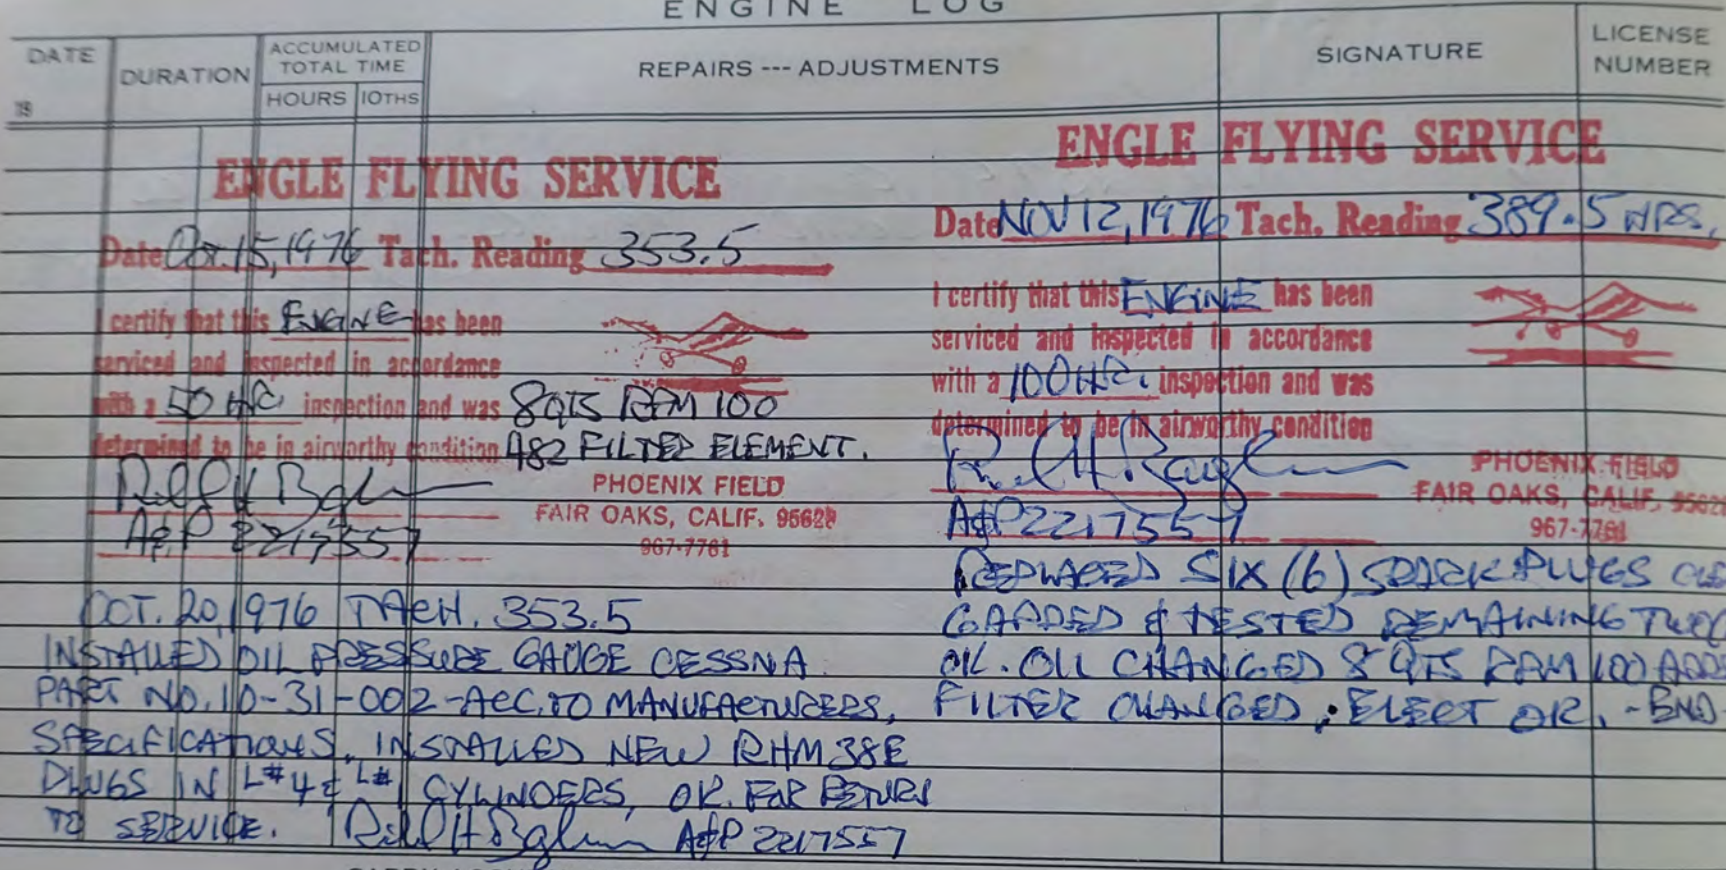 ENGINE LOG
DATE
19
DURATION
ACCUMULATED TOTAL TIME
HOURS 10THS
REPAIRS --- ADJUSTMENTS
SIGNATURE
LICENSE NUMBER
ENGLE FLYING SERVICE
Date Oct. 15, 1976 Tach. Reading 353.5
I certify that this ENGINE has been
serviced and inspected in accordance
with a 50 HR. inspection and was 8 QTS RPM 100
determined to be in airworthy condition A82 FILTER ELEMENT.
A&P 2217557
PHOENIX FIELD
FAIR OAKS, CALIF. 95628
967-7761
OCT. 20, 1976 TACH. 353.5
INSTALLED OIL PRESSURE GAUGE CESSNA
PART NO. 10-31-002-ACC. TO MANUFACTURERS,
SPECIFICATIONS. INSTALLED NEW RHM38E
PLUGS IN L#4 & L# CYLINDERS, OK. FOR RETURN
TO SERVICE. A&P 2217557
ENGLE FLYING SERVICE
Date NOV 12, 1976 Tach. Reading 389.5 HRS.
I certify that this ENGINE has been
serviced and inspected in accordance
with a 100 HR. inspection and was
determined to be in airworthy condition
A&P 2217557
PHOENIX FIELD
FAIR OAKS, CALIF. 95628
967-7761
REPLACED SIX (6) SPARK PLUGS
GAPPED & TESTED REMAINING TWO
OK. OIL CHANGED 8 QTS RPM 100
FILTER CHANGED, ELECT OK. - END